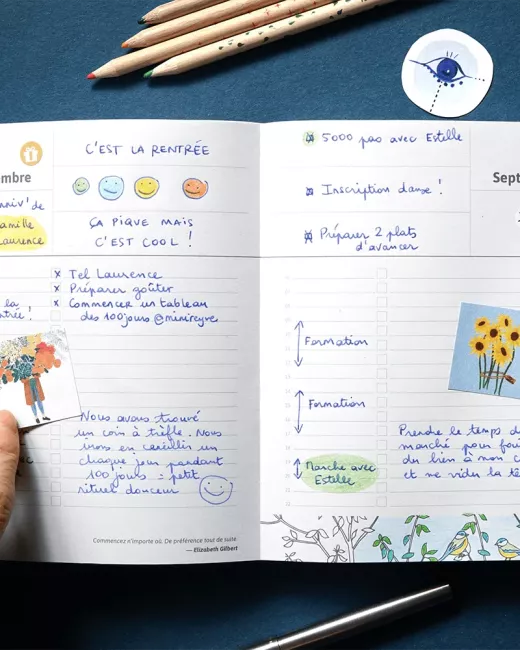 mbre
nniv' de
amille
aurence
C'EST LA RENTRÉE
ÇA PIQUE MAIS
C'EST COOL !
x Tel Laurence
x Préparer goûter
x Commencer un tableau
des 100 jours @minireyve
la
ntrée !
Nous avons trouvé
un coin à trèfle. Nous
irons en cueillir un
chaque jour pendant
100 jours = petit
rituel douceur
Commencez n'importe où. De préférence tout de suite
— Elizabeth Gilbert
5000 pas avec Estelle
Inscription danse !
Préparer 2 plats
d'avancer
Sept
Formation
Formation
Marche avec
Estelle
Prendre le temps d
marché pour fou
du bien à mon c
et me vider la tê